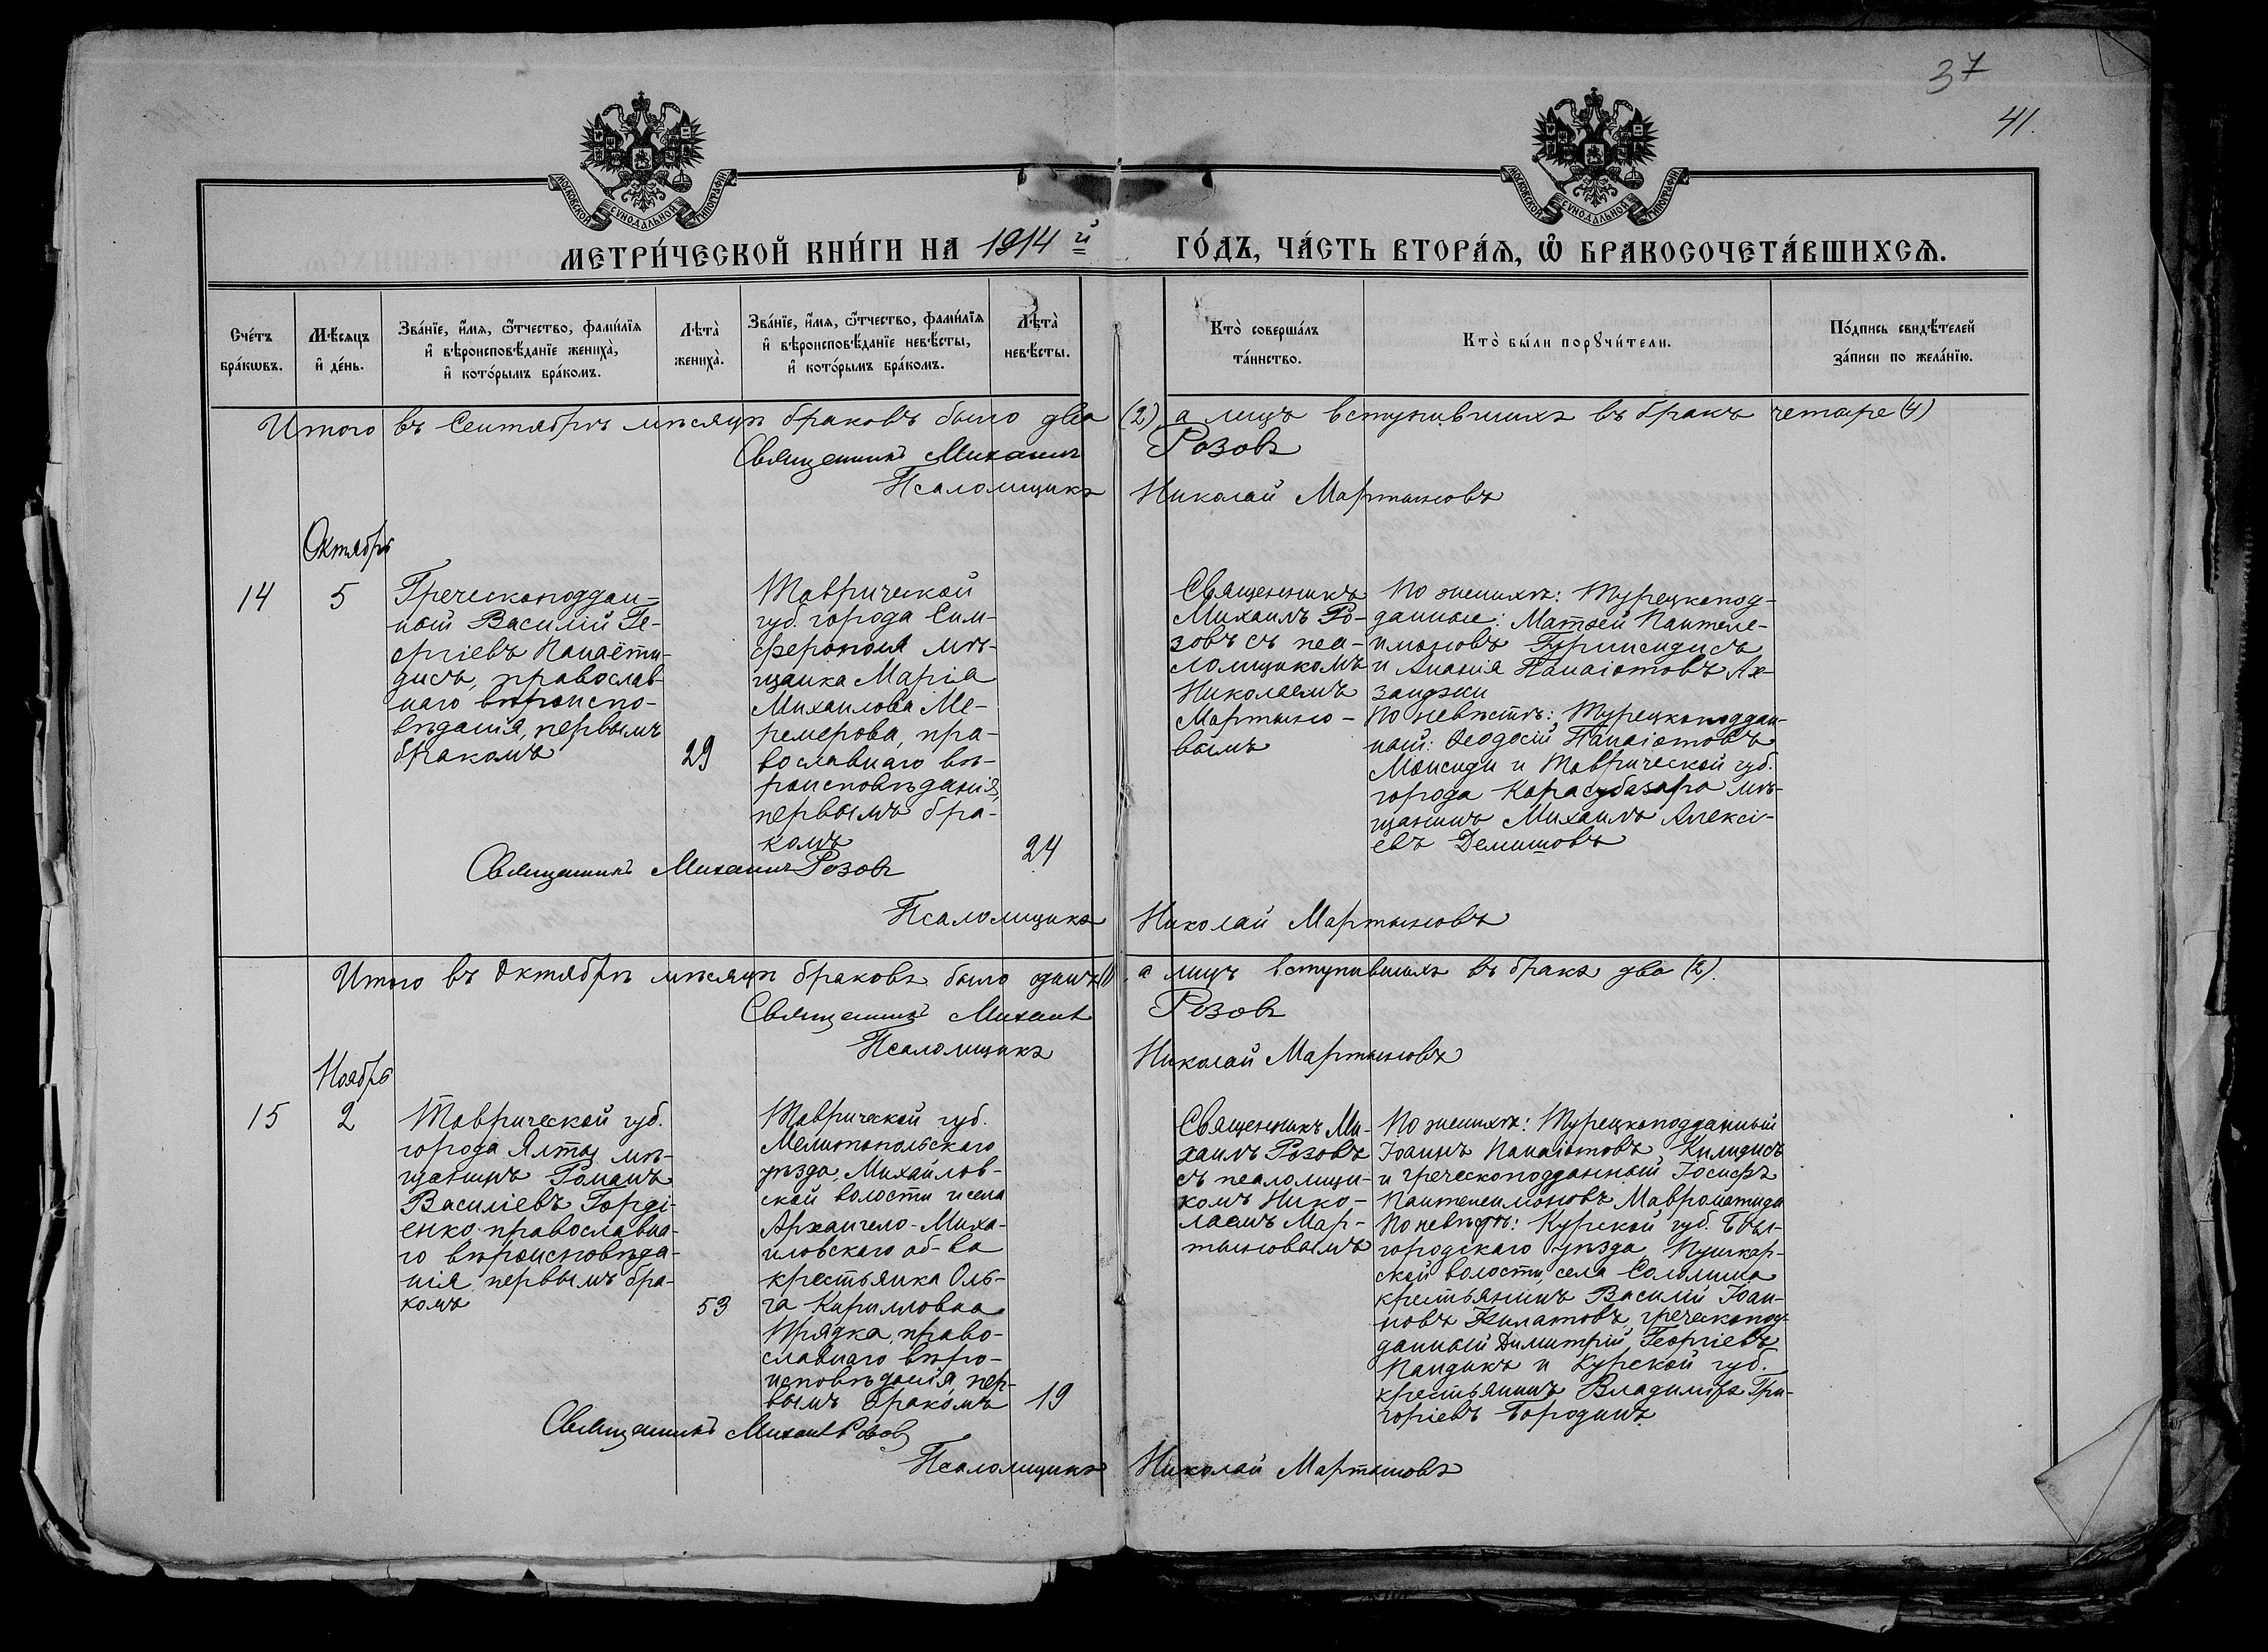 37
41.
МОСКОВСКОЙ СУНОДАЛЬНОЙ ТИПОГРАФІИ
МОСКОВСКОЙ СУНОДАЛЬНОЙ ТИПОГРАФІИ
МЕТРИ́ЧЕСКОЙ КНИ́ГИ НА 1914 й ГО́ДЪ, ЧА́СТЬ ВТОРА́Я, Ѿ БРАКОСОЧЕТА́ВШИХСЯ.
Сче́тъ
бра́кѡвъ.
Мѣ́сяцъ
и҆ де́нь.
Зва́нїе, и҆́мя, ѻ҆́тчество, фами́лїя
и҆ вѣроисповѣ́данїе жениха̀,
и҆ кото́рымъ бра́комъ.
Лѣта̀
жениха̀.
Зва́нїе, и҆́мя, ѻ҆́тчество, фами́лїя
и҆ вѣроисповѣ́данїе невѣ́сты,
и҆ кото́рымъ бра́комъ.
Лѣта̀
невѣ́сты.
Кто̀ соверша́лъ
та́инство.
Кто̀ бы́ли порꙋчи́тели.
По́дпись свидѣ́телей
за́писи по жела́нїю.
Итого въ Сентябрѣ мѣсяцѣ браковъ было два (2), а лицъ вступившихъ въ бракъ четыре (4)
Священникъ Михаилъ Розовъ
Псаломщикъ Николай Мартыновъ
Октябрь
14
5
Греческоподдан-
ный Василій Ге-
оргіевъ Панаёти-
дисъ, православ-
наго вѣроиспо-
вѣданія, первымъ
бракомъ
29
Таврической
губ. города Сим-
ферополя мѣ-
щанка Марія
Михаилова Ме-
ремерова, пра-
вославнаго вѣ-
роисповѣданія,
первымъ бра-
комъ
24
Священникъ
Михаилъ Ро-
зовъ съ пса-
ломщикомъ
Николаемъ
Мартыно-
вымъ
По женихѣ: Турецкопод-
данные: Матѳей Пантеле-
имоновъ
и Ананія Панаіотовъ Ах-
занджи
По невѣстѣ: Турецкоподдан-
ный: Ѳеодосій Панаіотовъ
Моисиди и Таврической губ.
города Карасубазара мѣ-
щанинъ Михаилъ Алексі-
евъ Демишовъ
Священникъ Михаилъ Розовъ
Псаломщикъ Николай Мартыновъ
Итого въ Октябрѣ мѣсяцѣ браковъ было одинъ (1), а лицъ вступившихъ въ бракъ два (2).
Священникъ Михаилъ Розовъ
Псаломщикъ Николай Мартыновъ
Ноябрь
15
2
Таврической губ.
города Ялты мѣ-
щанинъ Романъ
Василіевъ Горді-
енко православна-
го вѣроисповѣда-
нія, первымъ бра-
комъ
53
Таврической губ.
Мелитопольскаго
уѣзда, Михайлов-
ской волости и села
Архангело-Миха-
иловскаго об-ва
крестьянка Оль-
га Кирилловна
Прядка, право-
славнаго вѣро-
исповѣданія, пер-
вымъ бракомъ
19
Священникъ Ми-
хаилъ Розовъ
съ псаломщи-
комъ Нико-
лаемъ Мар-
тыновымъ
По женихѣ: Турецкоподданный
Іоаннъ Панаіотовъ Килидисъ
и греческоподданный Іосифъ
Пантелеимоновъ Мавроматиди
По невѣстѣ: Курской губ. Бѣл-
городскаго уѣзда, Пушкар-
ской волости, села Соломина
крестьянинъ Василій Іоан-
новъ греческопод-
данный Димитрій Георгіевъ
Пандикъ и Курской губ.
крестьянинъ Владиміръ Гри-
горіевъ Бородинъ
Священникъ Михаилъ Розовъ
Псаломщикъ Николай Мартыновъ